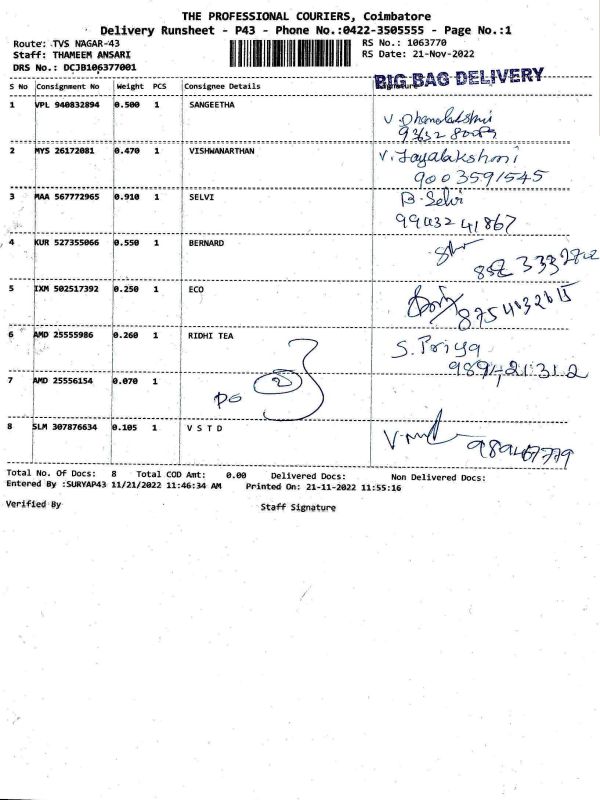 THE PROFESSIONAL COURIERS, Coimbatore
Delivery Runsheet - P43 - Phone No.:0422-3505555 - Page No.:1
Route: TVS NAGAR-43 RS No.: 1063770
Staff: THAMEEM ANSARI RS Date: 21-Nov-2022
DRS No.: DCJB106377001
BIG BAG DELIVERY
S No Consignment No Weight PCS Consignee Details Signature
1 VPL 940832894 0.500 1 SANGEETHA
V. Dhanalakshmi
2 MYS 26172081 0.470 1 VISHWANARTHAN V. Jayalakshmi
9003591545
3 MAA 567772965 0.910 1 SELVI B. Selvi
9943241867
4 KUR 527355066 0.550 1 BERNARD
5 IXM 502517392 0.250 1 ECO
8754032615
6 AMD 25555986 0.260 1 RIDHI TEA S. Priya
7 AMD 25556154 0.070 1
2
8 SLM 307876634 0.105 1 V S T D
Total No. Of Docs: 8 Total COD Amt: 0.00 Delivered Docs: Non Delivered Docs:
Entered By :SURYAP43 11/21/2022 11:46:34 AM Printed On: 21-11-2022 11:55:16
Verified By Staff Signature